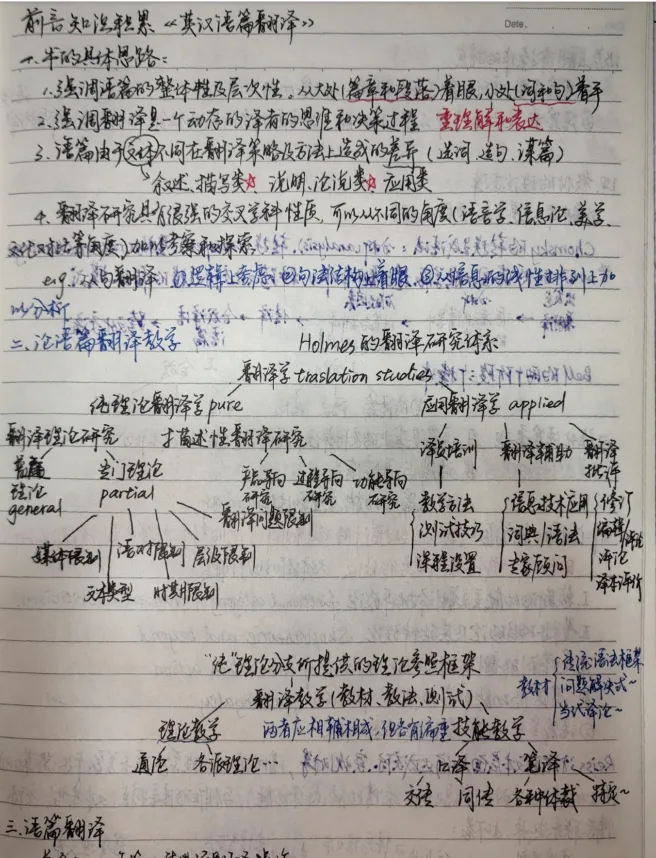 前言知识积累《英汉语篇翻译》
Date.
一.书的具体思路:
1.强调语篇的整体性及层次性,从大处(篇章和段落)着眼,小处(词和句)着手
2.强调翻译是一个动态的译者的思维和决策过程 重理解和表达
3.语篇由于文体不同在翻译策略及方法上造成的差异(选词、造句、谋篇)
叙述、描写类☆ 说明、论说类☆ 应用类
4.翻译研究具有很强的交叉学科性质,可以从不同的角度(语言学、信息论、美学、
文化对比等角度)加以考察和探索
e.g. 译与翻译 ①逻辑上考虑 ②句法结构上着眼 ③从信息的线性排列上加
以分析
二、论语篇翻译教学 Holmes的翻译研究体系
翻译学 traslation studies
纯理论翻译学 pure 应用翻译学 applied
翻译理论研究 描述性翻译研究 译员培训 翻译辅助 翻译批评
普遍理论 general 专门理论 partial 产品导向研究 过程导向研究 功能导向研究
翻译问题限制
媒体限制 语对限制 层级限制
文本类型 时期限制
教学方法 信息技术应用 修订
测试技巧 词典/语法 编辑
课程设置 专家顾问 评论
译本评价
"纯"理论分支所提供的理论参照框架
翻译教学(教材、教法、测试)
教材 传统语法框架
问题解决式~
当代译论~
理论教学 两者应相辅相成,但各有偏重 技能教学
通论 各派理论…
口译 笔译
交传 同传 各种体裁 特定~
三.语篇翻译